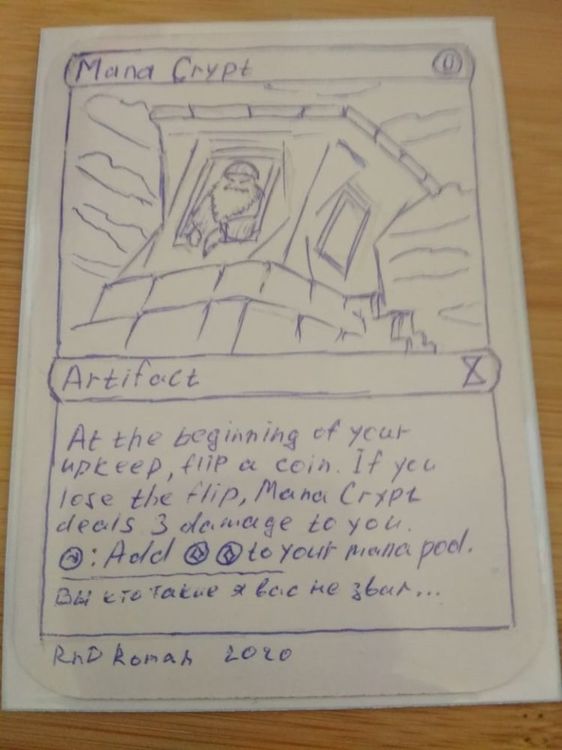 Mana Crypt 0
Artifact
At the beginning of your
upkeep, flip a coin. If you
lose the flip, Mana Crypt
deals 3 damage to you.
: Add ◇ ◇ to your mana pool.
Вы кто такие я вас не звал...
RnD Roman 2020